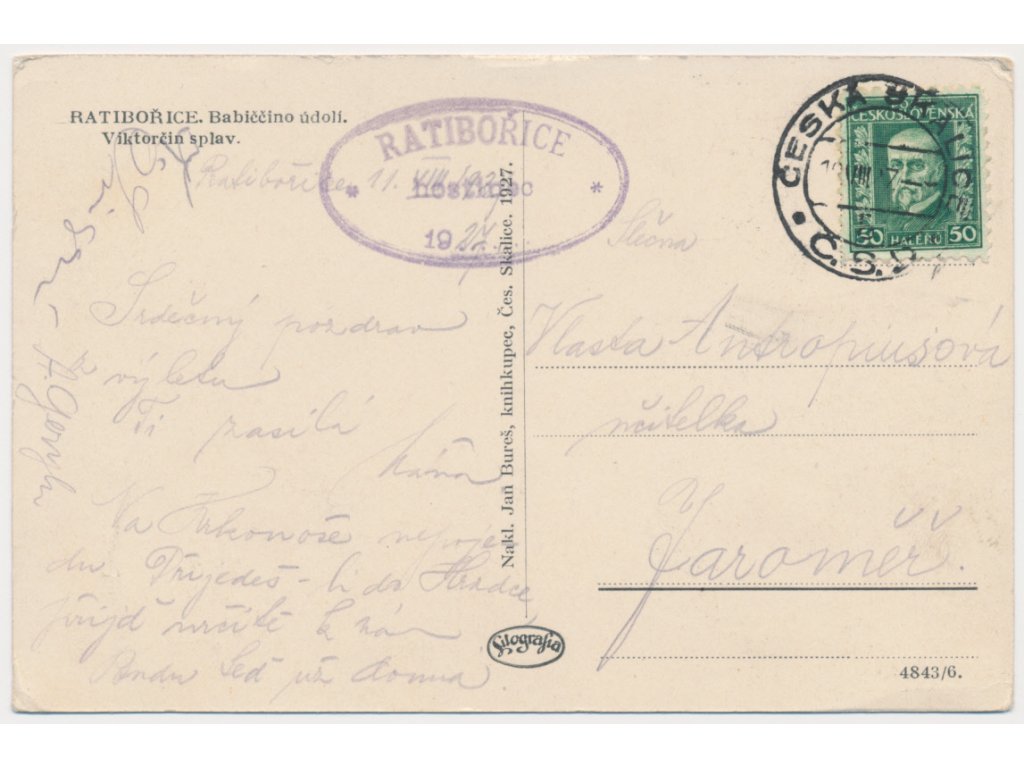 RATIBOŘICE. Babiččino údolí.
Viktorčin splav.
RATIBOŘICE
hostinec
1927
Ratibořice 11. VIII. 1927
Srdečný pozdrav
z výletu
Ti zasílá
Máňa
Na Krkonoše nepoje
du. Přijedeš-li do Hradce
přijď určitě k nám
Budu teď už doma
A.
Nakl. Jan Bureš, knihkupec, Čes. Skalice. 1927.
ČESKÁ SKALICE
Č.S.D.
ČESKOSLOVENSKÁ
50 HALÉŘŮ 50
Slečna
Vlasta Antropiusová
učitelka
Jaroměř.
Fotografia
4843/6.